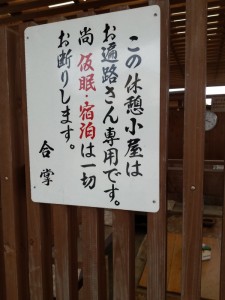 この休憩小屋は
お遍路さん専用です。
尚仮眠・宿泊は一切
お断りします。
合掌